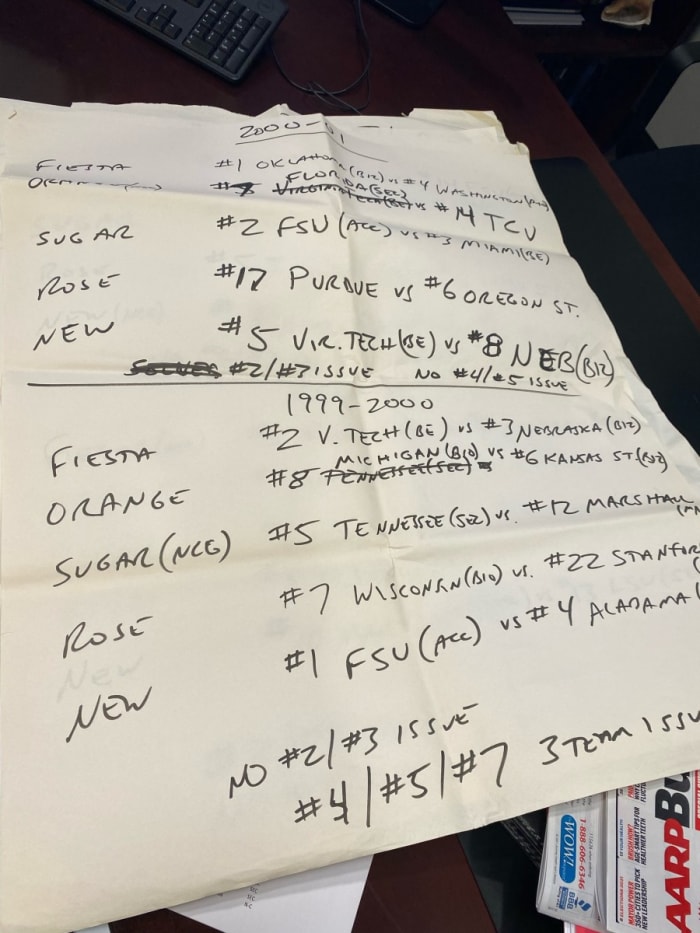 2000-01
FIESTA #1 OKLAHOMA (B12) vs #4 WASHINGTON
FLORIDA (SEC)
#7 VIRGINIA TECH (BE) vs #14 TCU
SUGAR #2 FSU (ACC) vs #3 MIAMI (BE)
ROSE #17 PURDUE vs #6 OREGON ST.
NEW #5 VIR. TECH (BE) vs #8 NEB (B12)
SOLVES #2/#3 ISSUE NO #4/#5 ISSUE
1999-2000
FIESTA #2 V. TECH (BE) vs #3 NEBRASKA (B12)
MICHIGAN (B10)
ORANGE #8 TENNESSEE (SEC) vs #6 KANSAS ST (B12)
SUGAR (NCG) #5 TENNESSEE (SEC) vs. #12 MARSHALL
ROSE #7 WISCONSIN (B10) vs. #22 STANFOR
NEW
NEW #1 FSU (ACC) vs #4 ALABAMA (
NO #2/#3 ISSUE
#4/#5/#7 3 TEAM ISSU
WOW!
1-888-606-6346
BBB
BRUSH NOW!
AGE-SMART TIPS FOR
HEALTHIER TEETH
MAYOR POWER
350+ CITIES TO PICK
NEW LEADERSHIP
AARP BU